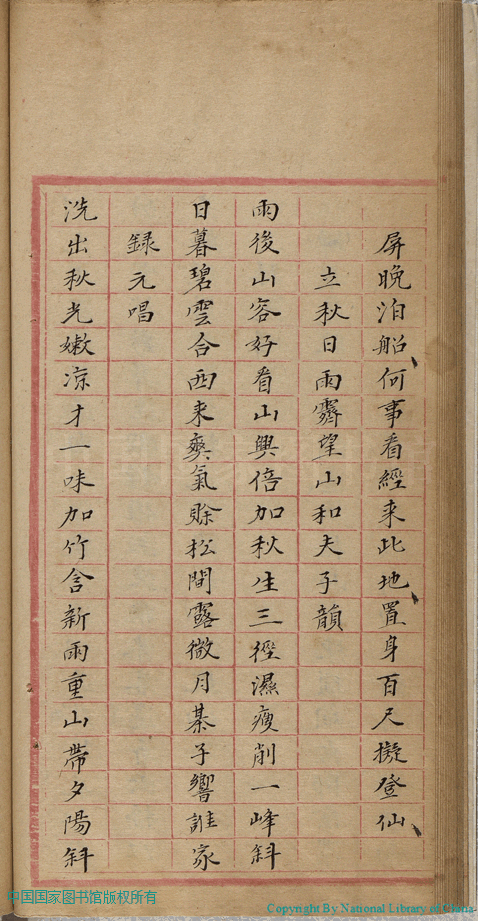 屏晚泊船何事看經来此地置身百尺擬登仙
立秋日雨霽望山和夫子韻
雨後山容好看山興倍加秋生三徑濕瘦削一峰斜
日暮碧雲合西来爽氣賒松間露微月棊子響誰家
録元唱
洗出秋光嫩涼才一味加竹含新雨重山帶夕陽斜
中国国家图书馆版权所有
Copyright By National Library of China